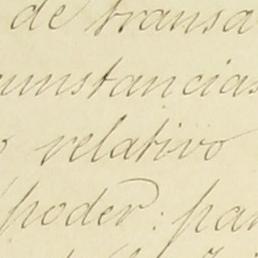 de transa
cunstancias
o relativo
poder: par